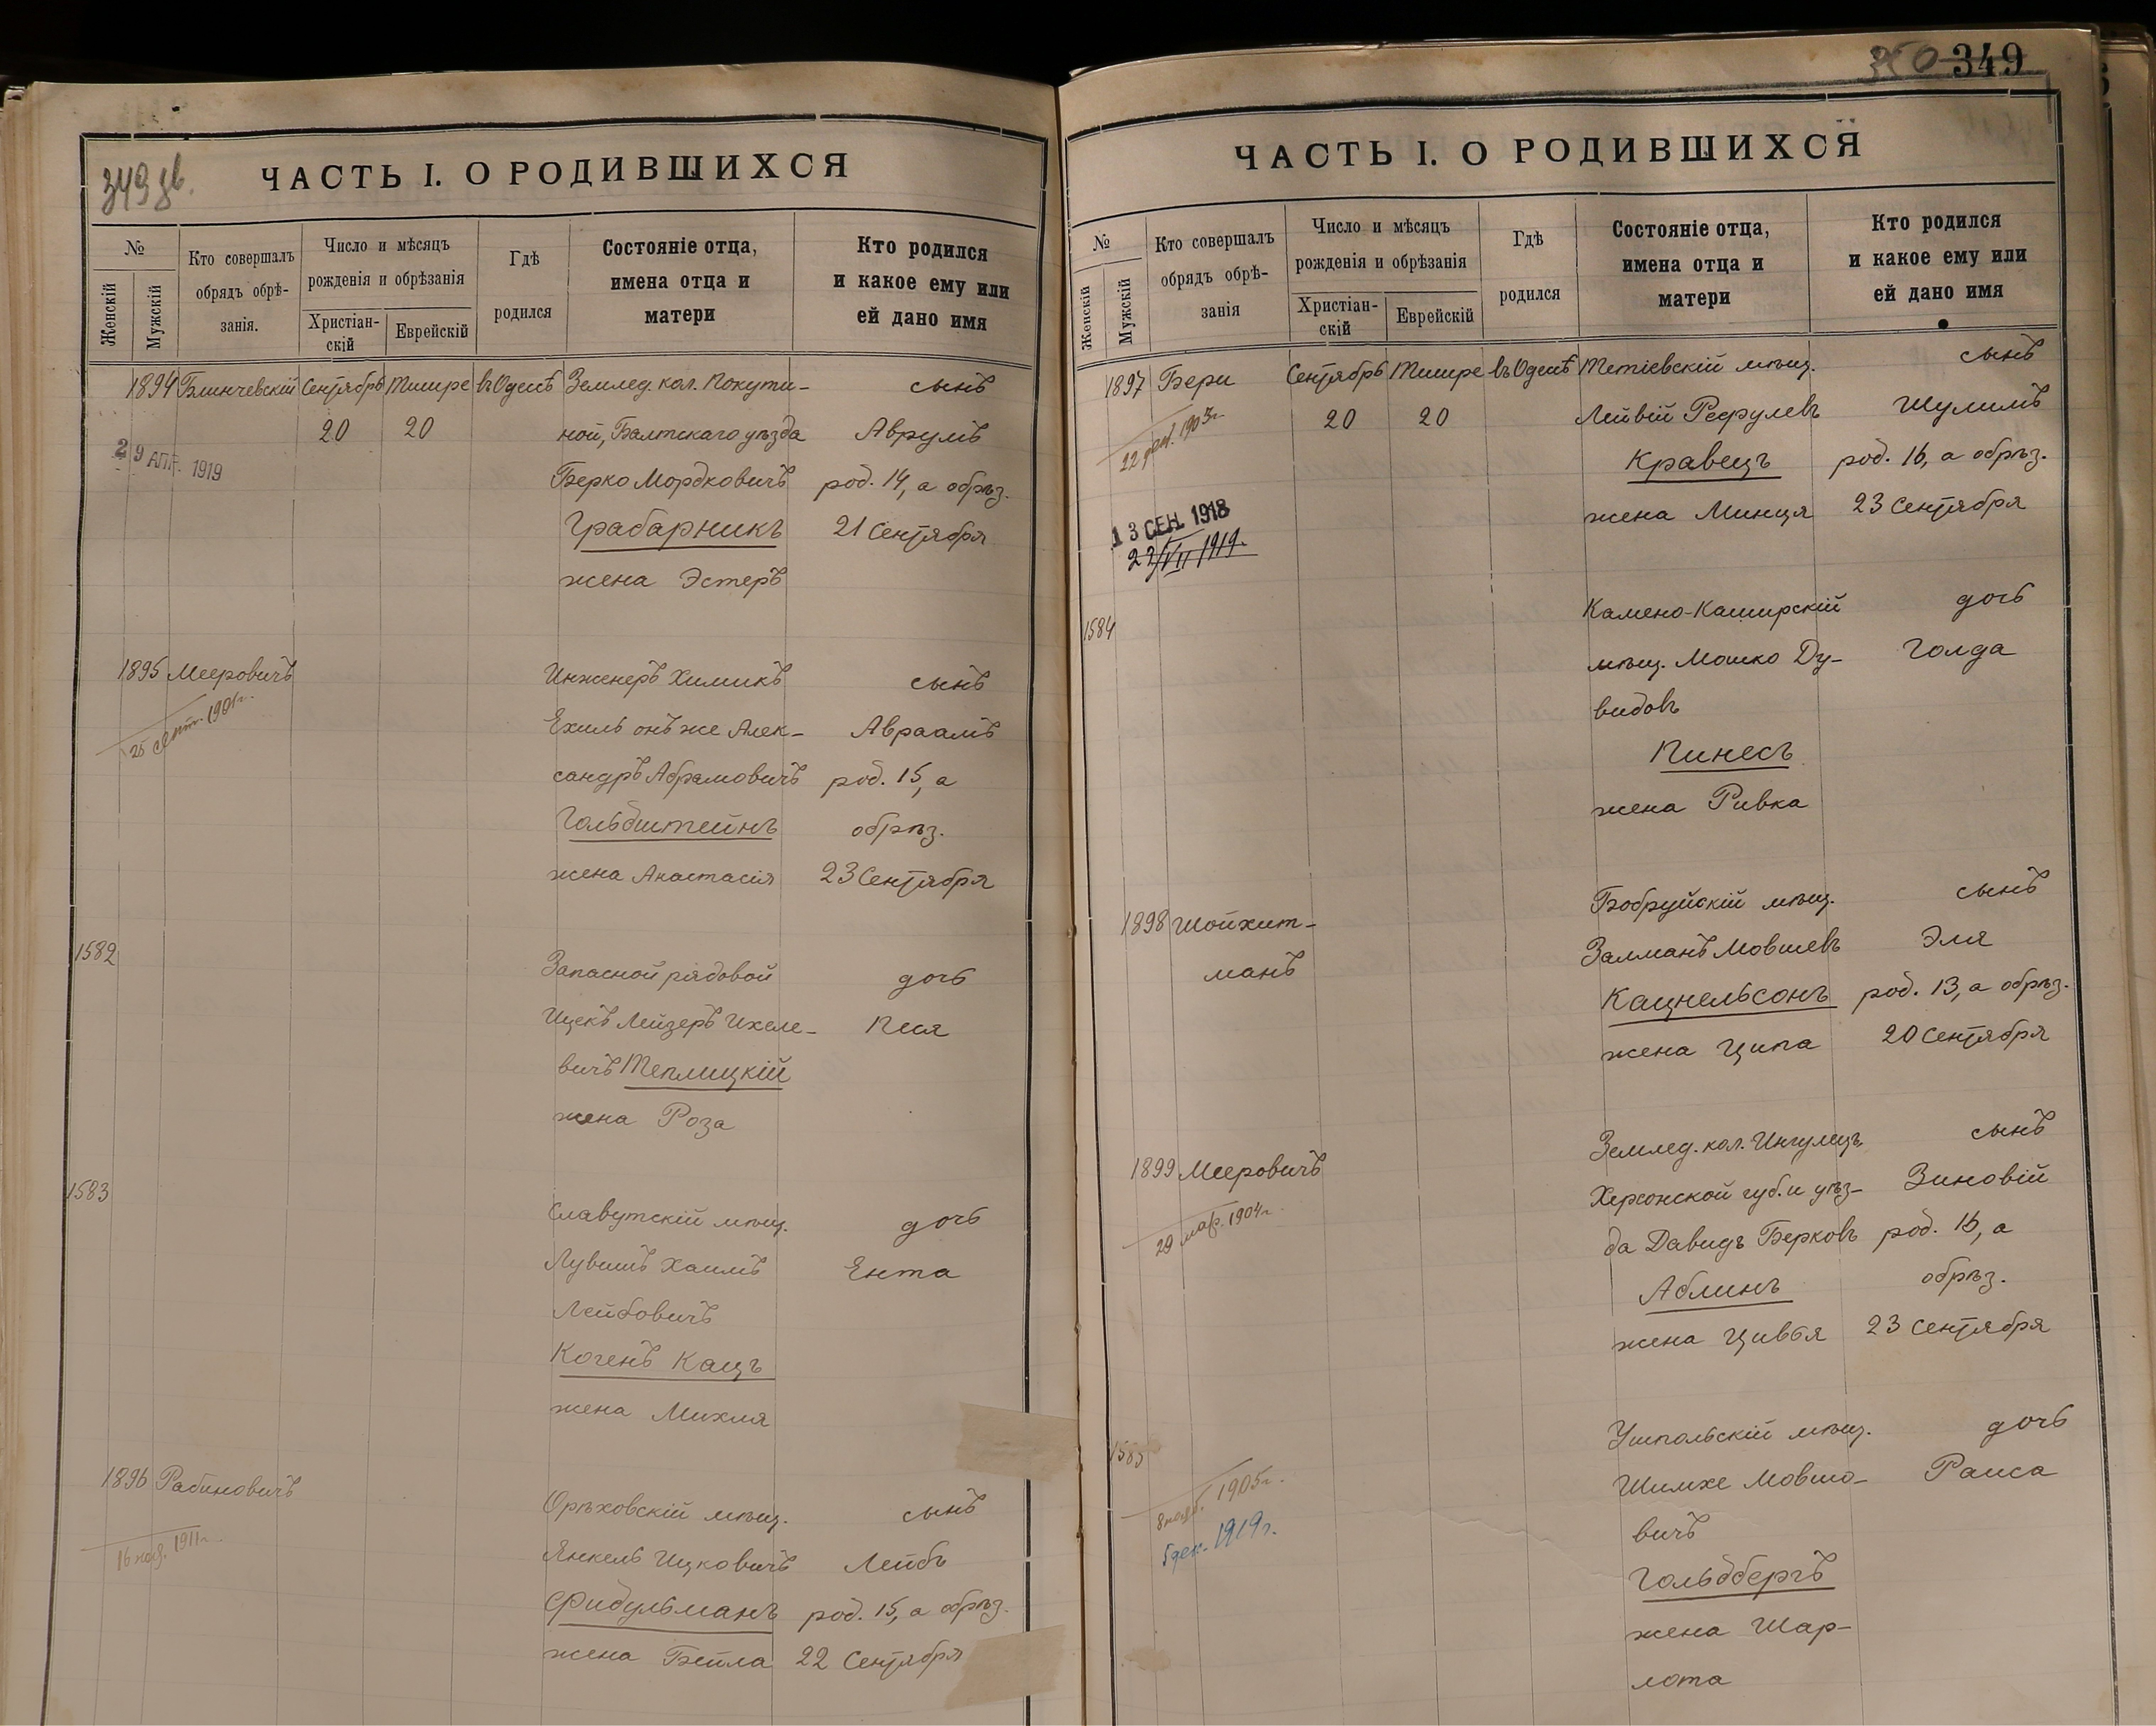 349 об.
ЧАСТЬ I. О РОДИВШИХСЯ
№
Женскій
Мужскій
Кто совершалъ
обрядъ обрѣ-
занія.
Число и мѣсяцъ
рожденія и обрѣзанія
Христіан-
скій
Еврейскій
Гдѣ
родился
Состояніе отца,
имена отца и
матери
Кто родился
и какое ему или
ей дано имя
1894 Блинчевскій Сентябрь Тишре въ Одессѣ Землед. кол. Покути- сынъ
20 20 ной, Балтскаго уѣзда Аврумъ
29 АПР. 1919
Берко Мордковичъ род. 14, а обрѣз.
Грабарникъ 21 Сентября
жена Эстеръ
1895 Мееровичъ Инженеръ Химикъ сынъ
25 сент. 1901г.
Ехиль онъ же Алек- Авраамъ
сандръ Абрамовичъ род. 15, а
Гольдштейнъ обрѣз.
жена Анастасія 23 Сентября
1582 Запасной рядовой дочь
Ицекъ Лейзеръ Ихеле- Песя
вичъ Теплицкій
жена Роза
1583 Славутскій мѣщ. дочь
Лувишъ Хаимъ Ента
Лейбовичъ
Когенъ Кацъ
жена Михля
1896 Рабиновичъ Орѣховскій мѣщ. сынъ
16 1911г.
Янкель Ицковичъ Лейбъ
Фидульманъ род. 15, а обрѣз.
жена Бейла 22 Сентября
350 349
ЧАСТЬ I. О РОДИВШИХСЯ
№
Женскій
Мужскій
Кто совершалъ
обрядъ обрѣ-
занія
Число и мѣсяцъ
рожденія и обрѣзанія
Христіан-
скій
Еврейскій
Гдѣ
родился
Состояніе отца,
имена отца и
матери
Кто родился
и какое ему или
ей дано имя
1897 Бери Сентябрь Тишре въ Одессѣ Тетіевскій мѣщ. сынъ
22 1903г.
20 20 Лейвій Рефулевъ Шулимъ
Кравецъ род. 16, а обрѣз.
жена Минця 23 Сентября
13 СЕН. 1918
22/VII 1919.
1584 Камено-Каширскій дочь
мѣщ. Мошко Ду- Голда
видовъ
Пинесъ
жена Ривка
1898 Шойхит- Бобруйскій мѣщ. сынъ
манъ Залманъ Мовшевъ Эля
Кацнельсонъ род. 13, а обрѣз.
жена Ципа 20 Сентября
1899 Мееровичъ Землед. кол. Ингулецъ сынъ
Херсонской губ. и уѣз- Зиновій
29 мар. 1904г.
да Давидъ Берковъ род. 16, а
Аблинъ обрѣз.
жена Цивья 23 Сентября
1585 Ушпольскій мѣщ. дочь
Шимхе Мовшо- Раиса
8 нояб. 1905г.
вичъ
5 дек. 1919г.
Гольдбергъ
жена Шар-
лота